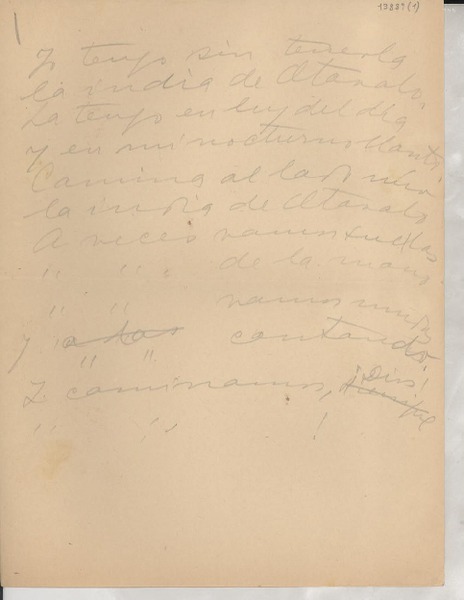 13889(1)
Y tengo sin tenerla
la india de Otavalo.
La tengo en luz del día
y en mi nocturno llanto.
Camina al lado mío
la india de Otavalo
A veces vamos sueltas
" " de la mano
" " vamos mudas
y a las cantando
" "
Y caminamos, ¡Dios! siempre
" " !